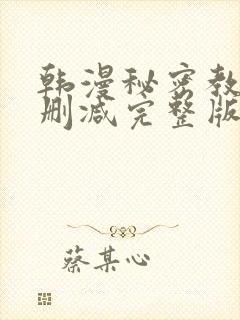 韩漫秘密教
删减完整版
蔡某心